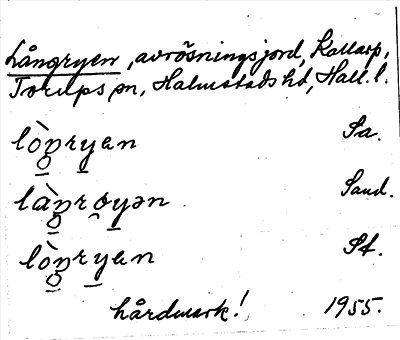 Långryen, avrösningsjord, Kallarp,
Torups sn, Halmstads hd, Hall. l.
lòŋryen Sa.
làŋrøyən Sand.
lòŋryen St.
hårdmark! 1955.